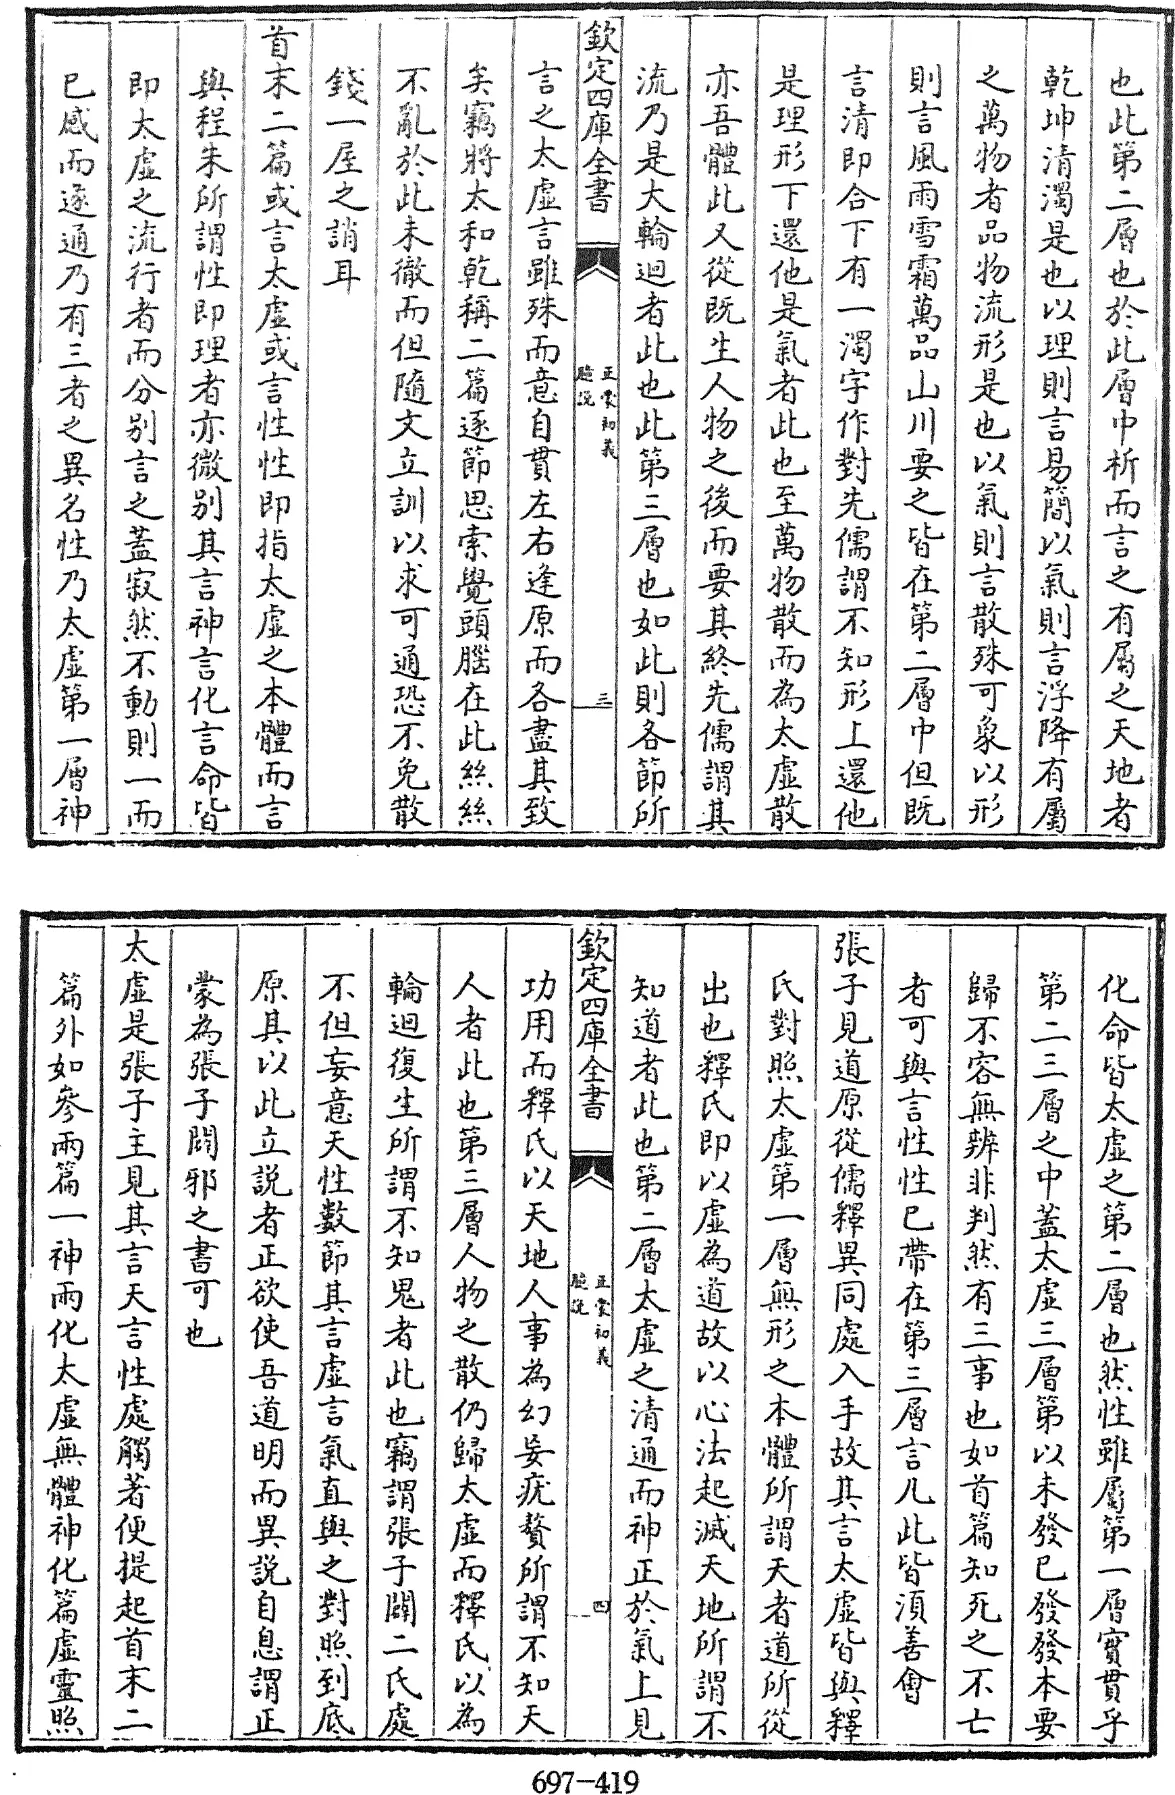 也此第二層也於此層中析而言之有屬之天地者
乾坤清濁是也以理則言易簡以氣則言浮降有屬
之萬物者品物流形是也以氣則言散殊可象以形
則言風雨雪霜萬品山川要之皆在第二層中但既
言清即合下有一濁字作對先儒謂不知形上還他
是理形下還他是氣者此也至萬物散而為太虛散
亦吾體此又從既生人物之後而要其終先儒謂其
流乃是大輪迴者此也此第三層也如此則各節所
欽定四庫全書
正蒙初義
臆說
三
言之太虛言雖殊而意自貫左右逢原而各盡其致
矣竊將太和乾稱二篇逐節思索覺頭腦在此絲絲
不亂於此未徹而但隨文立訓以求可通恐不免散
錢一屋之誚耳
首末二篇或言太虛或言性性即指太虛之本體而言
與程朱所謂性即理者亦微别其言神言化言命皆
即太虛之流行者而分别言之蓋寂然不動則一而
已感而遂通乃有三者之異名性乃太虛第一層神
化命皆太虛之第二層也然性雖屬第一層實貫乎
第二三層之中蓋太虛三層第以未發已發發本要
歸不容無辨非判然有三事也如首篇知死之不亡
者可與言性性已帶在第三層言凡此皆須善會
張子見道原從儒釋異同處入手故其言太虛皆與釋
氏對照太虛第一層無形之本體所謂天者道所從
出也釋氏即以虛為道故以心法起滅天地所謂不
知道者此也第二層太虛之清通而神正於氣上見
欽定四庫全書
正蒙初義
臆說
四
功用而釋氏以天地人事為幻妄疣贅所謂不知天
人者此也第三層人物之散仍歸太虛而釋氏以為
輪迴復生所謂不知鬼者此也竊謂張子闢二氏處
不但妄意天性數節其言虛言氣直與之對照到底
原其以此立說者正欲使吾道明而異說自息謂正
蒙為張子闢邪之書可也
太虛是張子主見其言天言性處觸著便提起首末二
篇外如參兩篇一神兩化太虛無體神化篇虛靈照
697-419